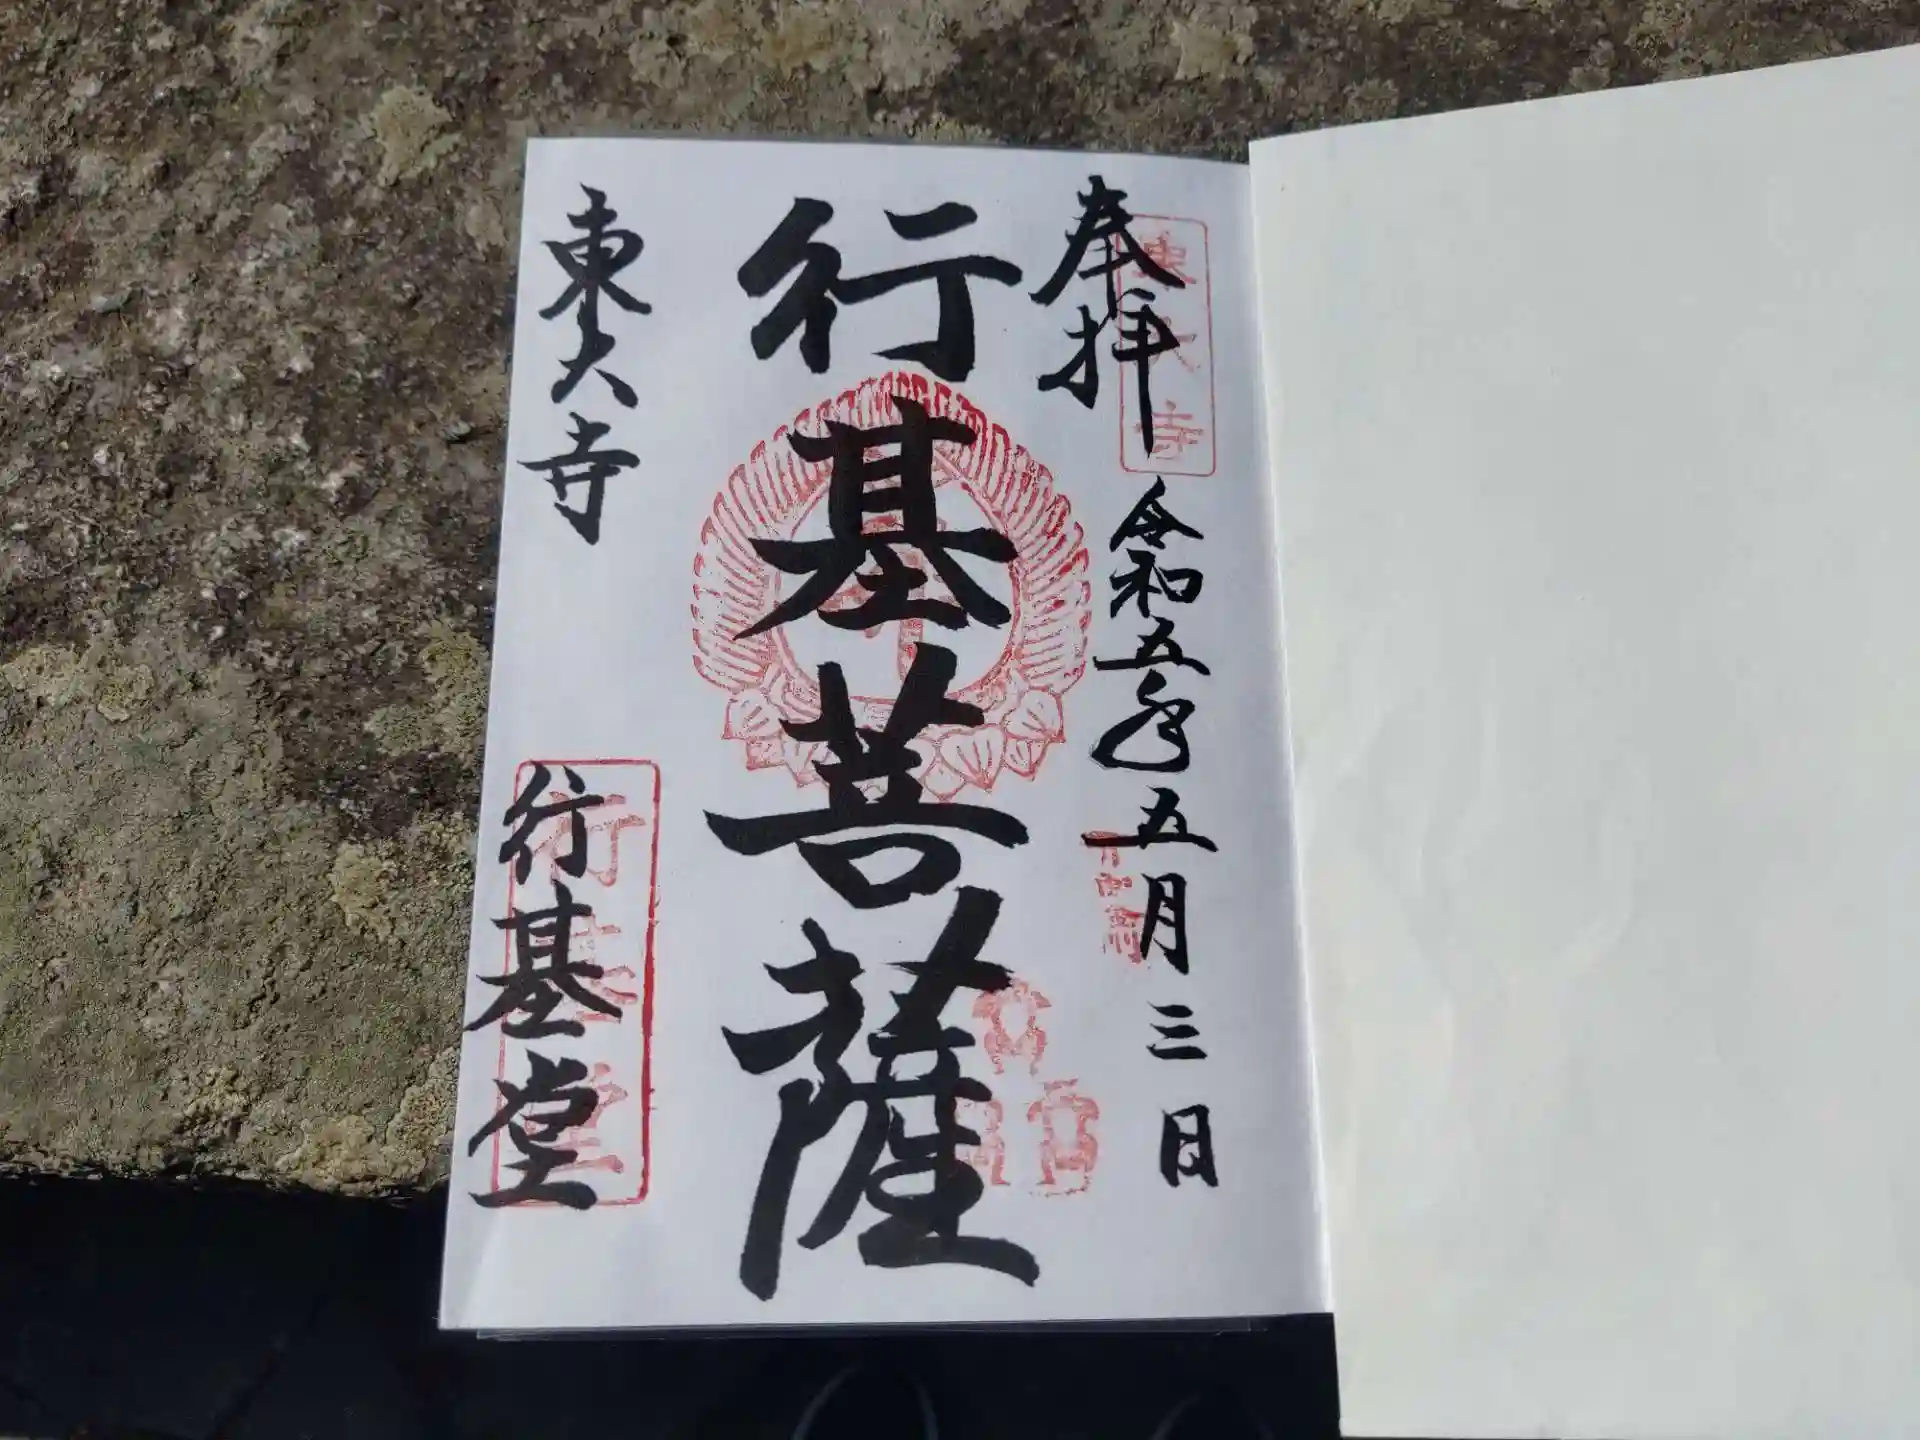 奉拝
令和五年五月三日
東大寺
行基菩薩
東大寺
行基堂
行基堂